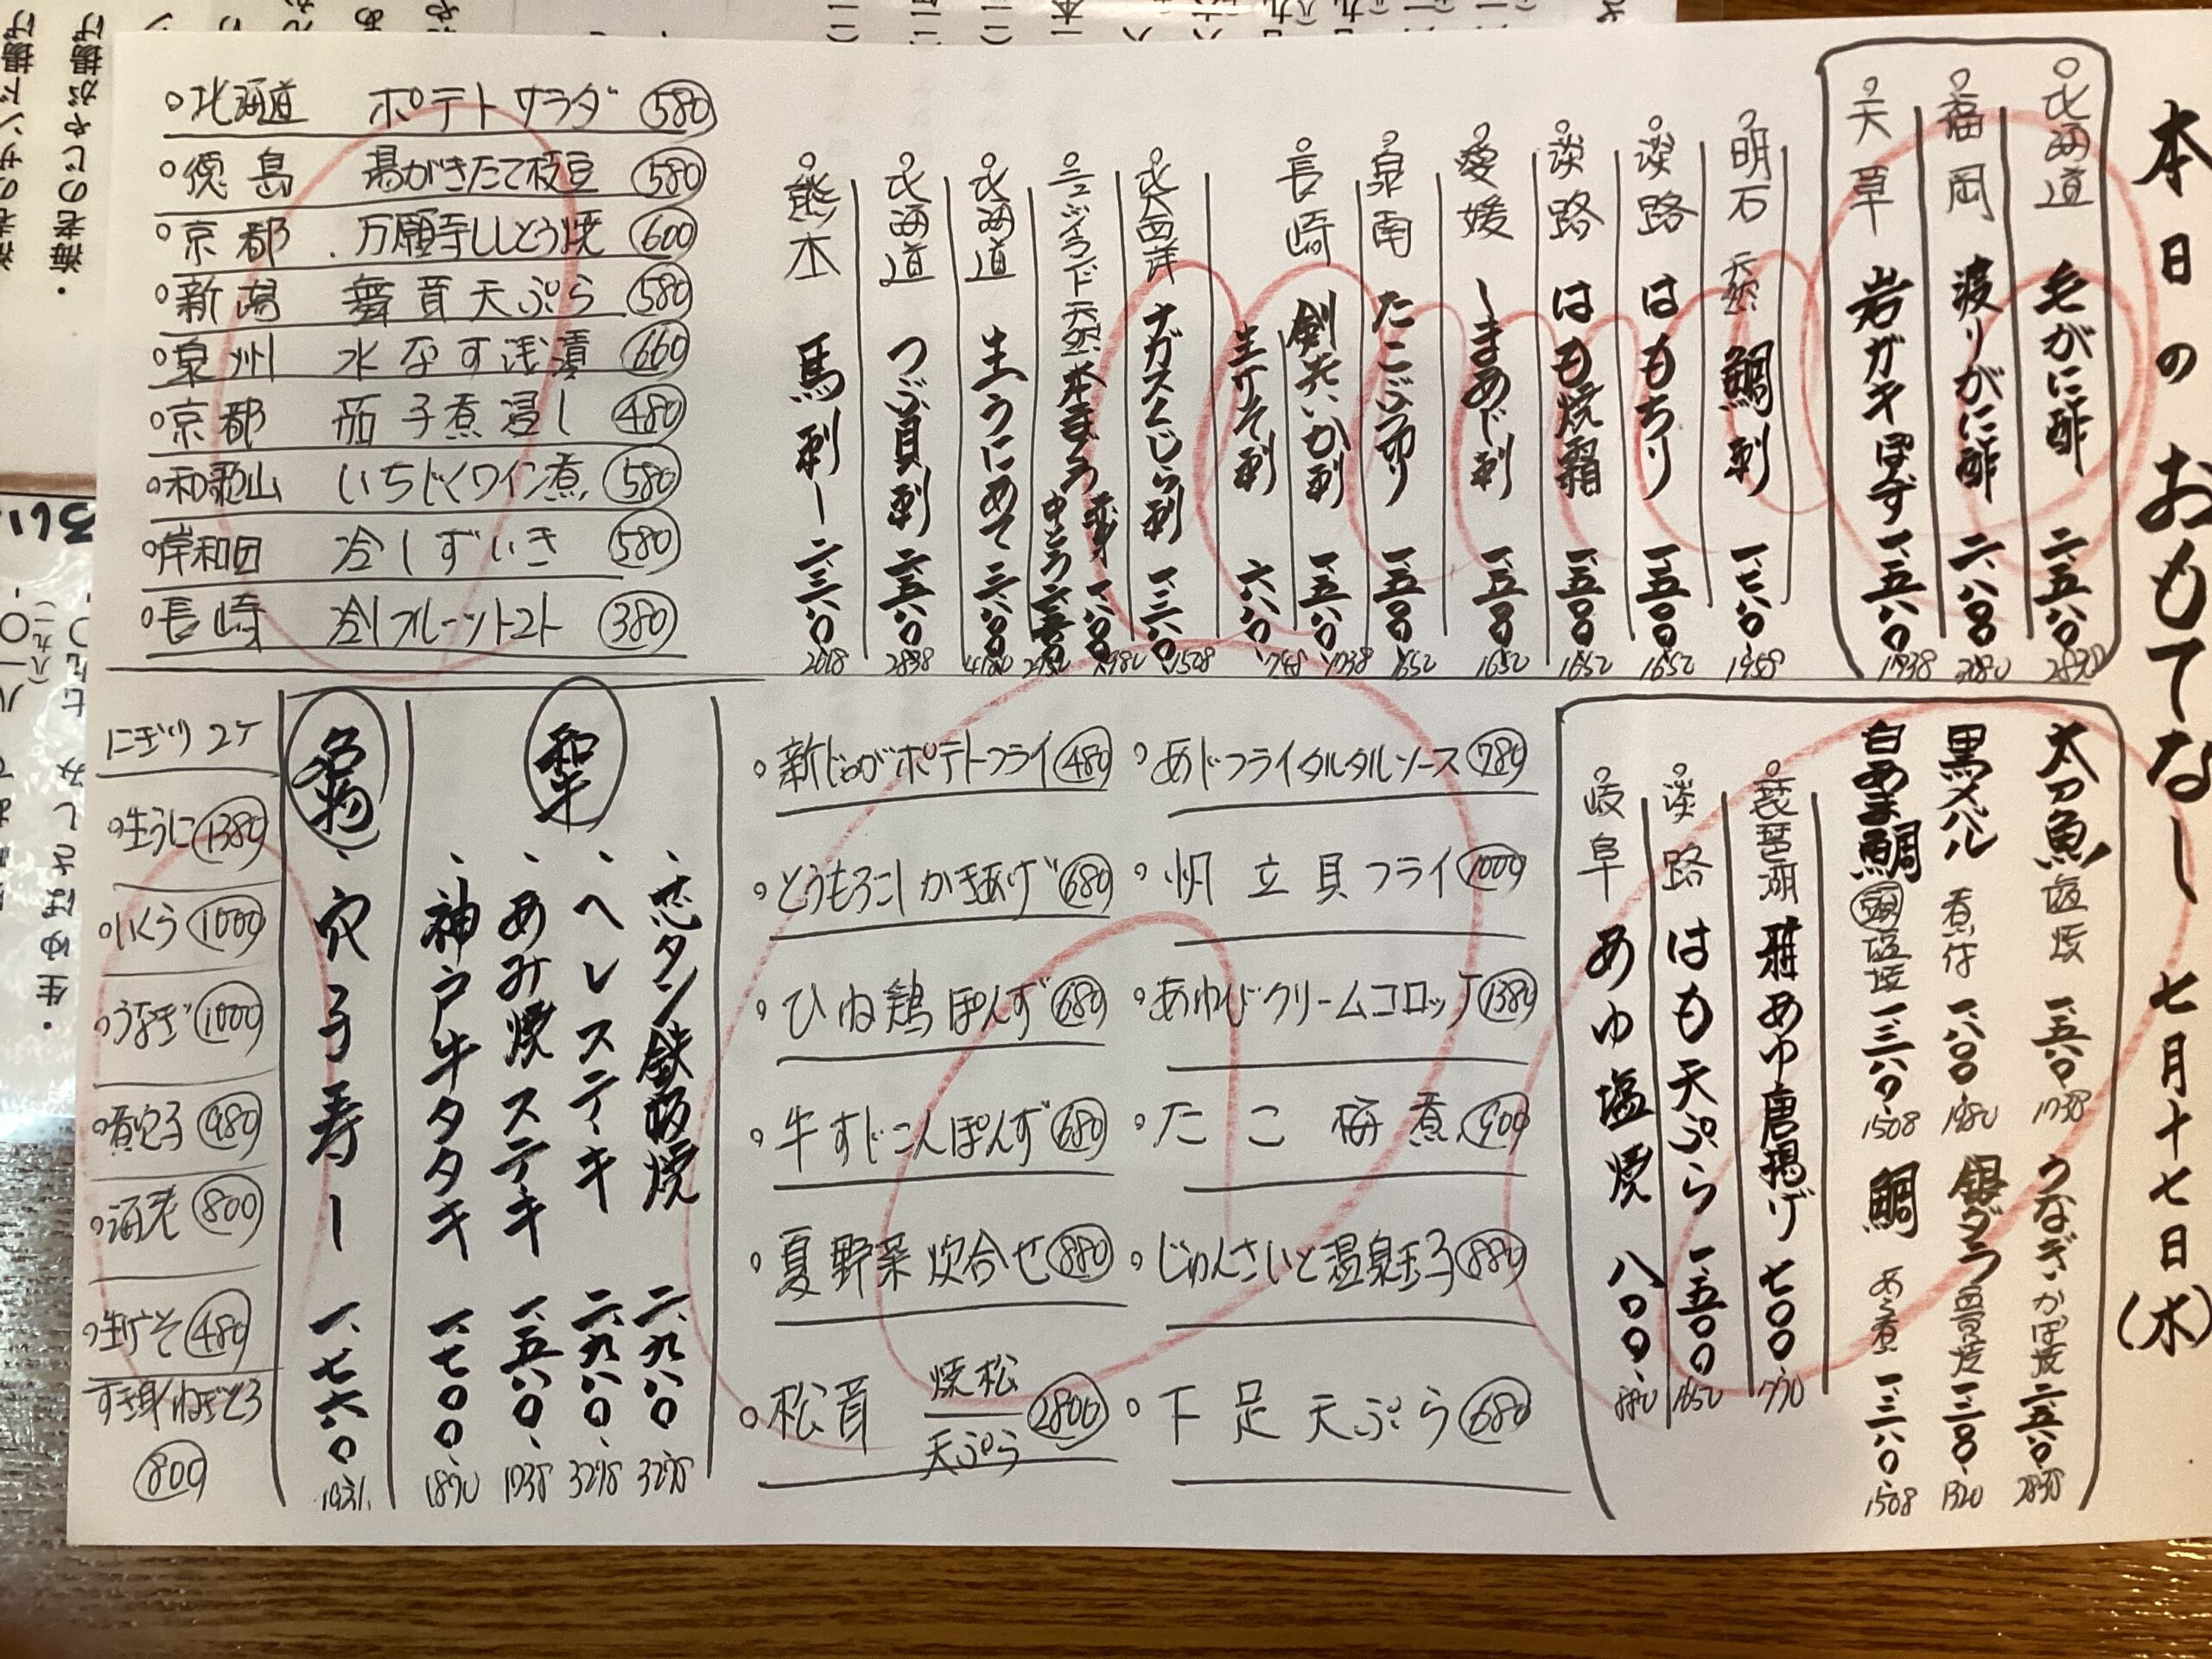 本日のおもてなし 七月十七日(水)
北海道 毛がに酢 二、五八〇 2838
福岡 渡りがに酢 二、八〇〇
天草 岩ガキぽず 一、五八〇 1738
明石 天然 鯛刺 一、七八〇 1958
淡路 はもちり 一、五〇〇 1650
淡路 はも焼霜 一、五〇〇 1650
愛媛 しまあじ刺 一、五〇〇 1650
泉南 たこぶつ切り 一、五〇〇 1650
長崎 剣先いか刺 一、五八〇 1738
生げそ刺 六八〇 748
北西洋 ナガスくじら刺
ニュージーランド 天然 本まぐろ 赤身 一、八〇〇 1980
中とろ
北海道 生うにあて 三、八〇〇 4180
北海道 つぶ貝刺 二、五八〇 2838
熊本 馬刺し
・北海道 ポテトサラダ 580
・徳島 湯がきたて枝豆 580
・京都 万願寺ししとう焼 600
・新潟 舞茸天ぷら 580
・泉州 水なす浅漬 660
・京都 茄子煮浸し 480
・和歌山 いちじくワイン煮 580
・岸和田 冷しずいき 580
・長崎 冷しフルーツトマト 380
太刀魚 塩焼 一、五八〇 1738
うなぎ かば焼 二、五八〇 2838
黒メバル 煮付 一、八〇〇 1980
銀ダラ 西京焼 1320
白あま鯛 頭 塩焼 1508
鯛 あら煮 1508
琵琶湖 稚あゆ唐揚げ 七〇〇 770
淡路 はも天ぷら 一、五〇〇 1650
岐阜 あゆ塩焼 八〇〇 880
・あじフライタルタルソース 780
・帆立貝フライ 1000
・あわびクリームコロッケ 1380
・たこ梅煮 900
・じゅんさいと温泉玉子 880
・下足天ぷら 680
・新じゃがポテトフライ 480
・とうもろこしかきあげ 680
・ひね鶏ぽんず 680
・牛すじこんぽんず 680
・夏野菜炊合せ 880
・松茸 焼松 天ぷら 2800
和牛
、タン鉄板焼 二、九八〇 3278
、ヘレステーキ 二、九八〇 3278
、あみ焼ステーキ 一、五八〇 1738
、神戸牛タタキ 一、七〇〇 1870
名物
、穴子寿し 一、七六〇
にぎり 2ケ
・生うに 1380
・いくら 1000
・うなぎ 1000
・煮穴子 980
・海老 800
・生げそ 480
すき身ねぎとろ
800
・海老のじゃが揚げ